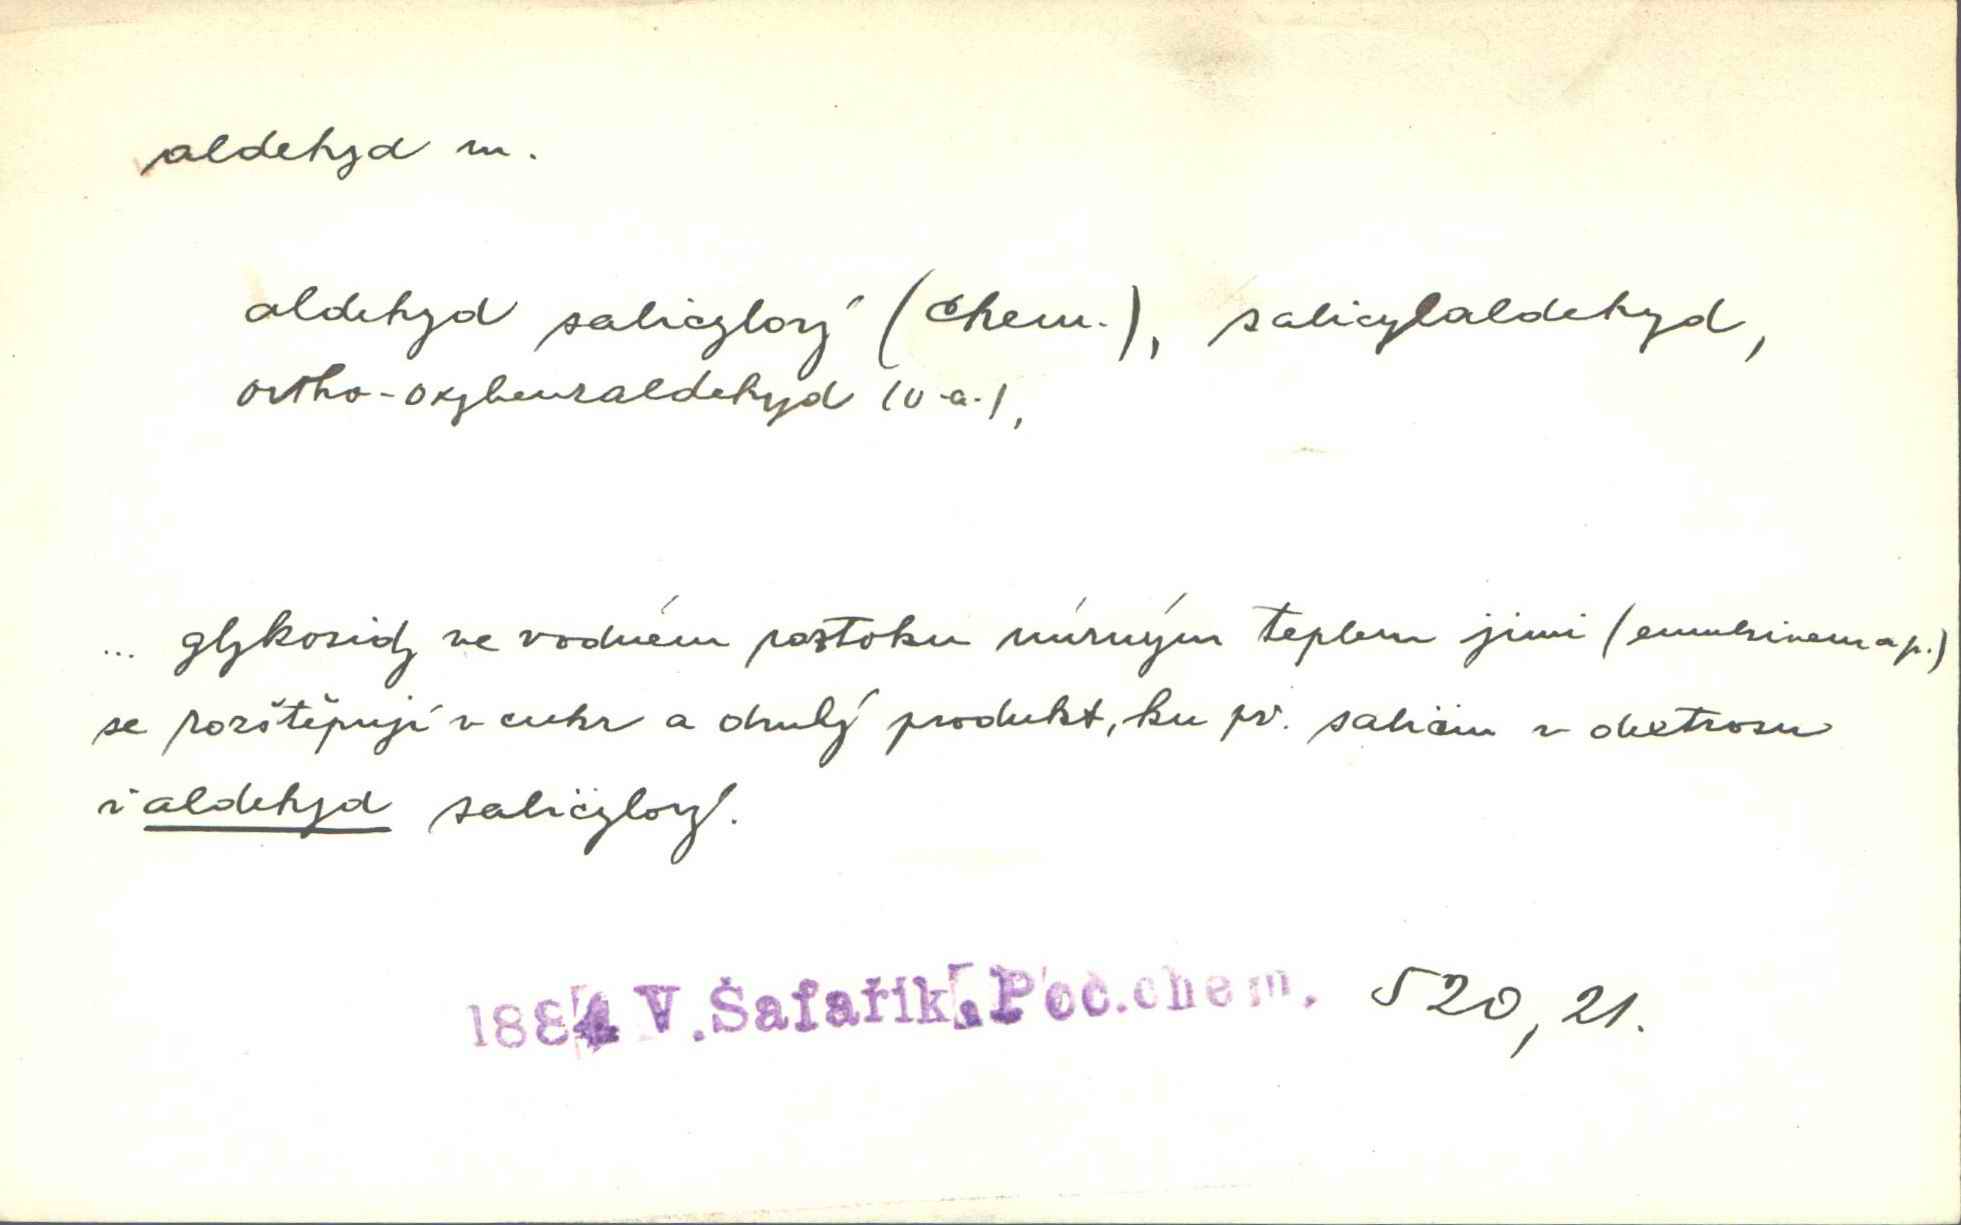 aldehyd m.
aldehyd salicylový (Chem.), salicylaldehyd,
ortho-oxybenzaldehyd (v.a.),
... glykosidy ve vodném roztoku mírným teplem jimi (emulsinem a p.)
se rozštěpují v cukr a druhý produkt, ku př. salicin v dextrosu
i aldehyd salicylový.
1884 V.Šafařík,Poč.chem. 520, 21.